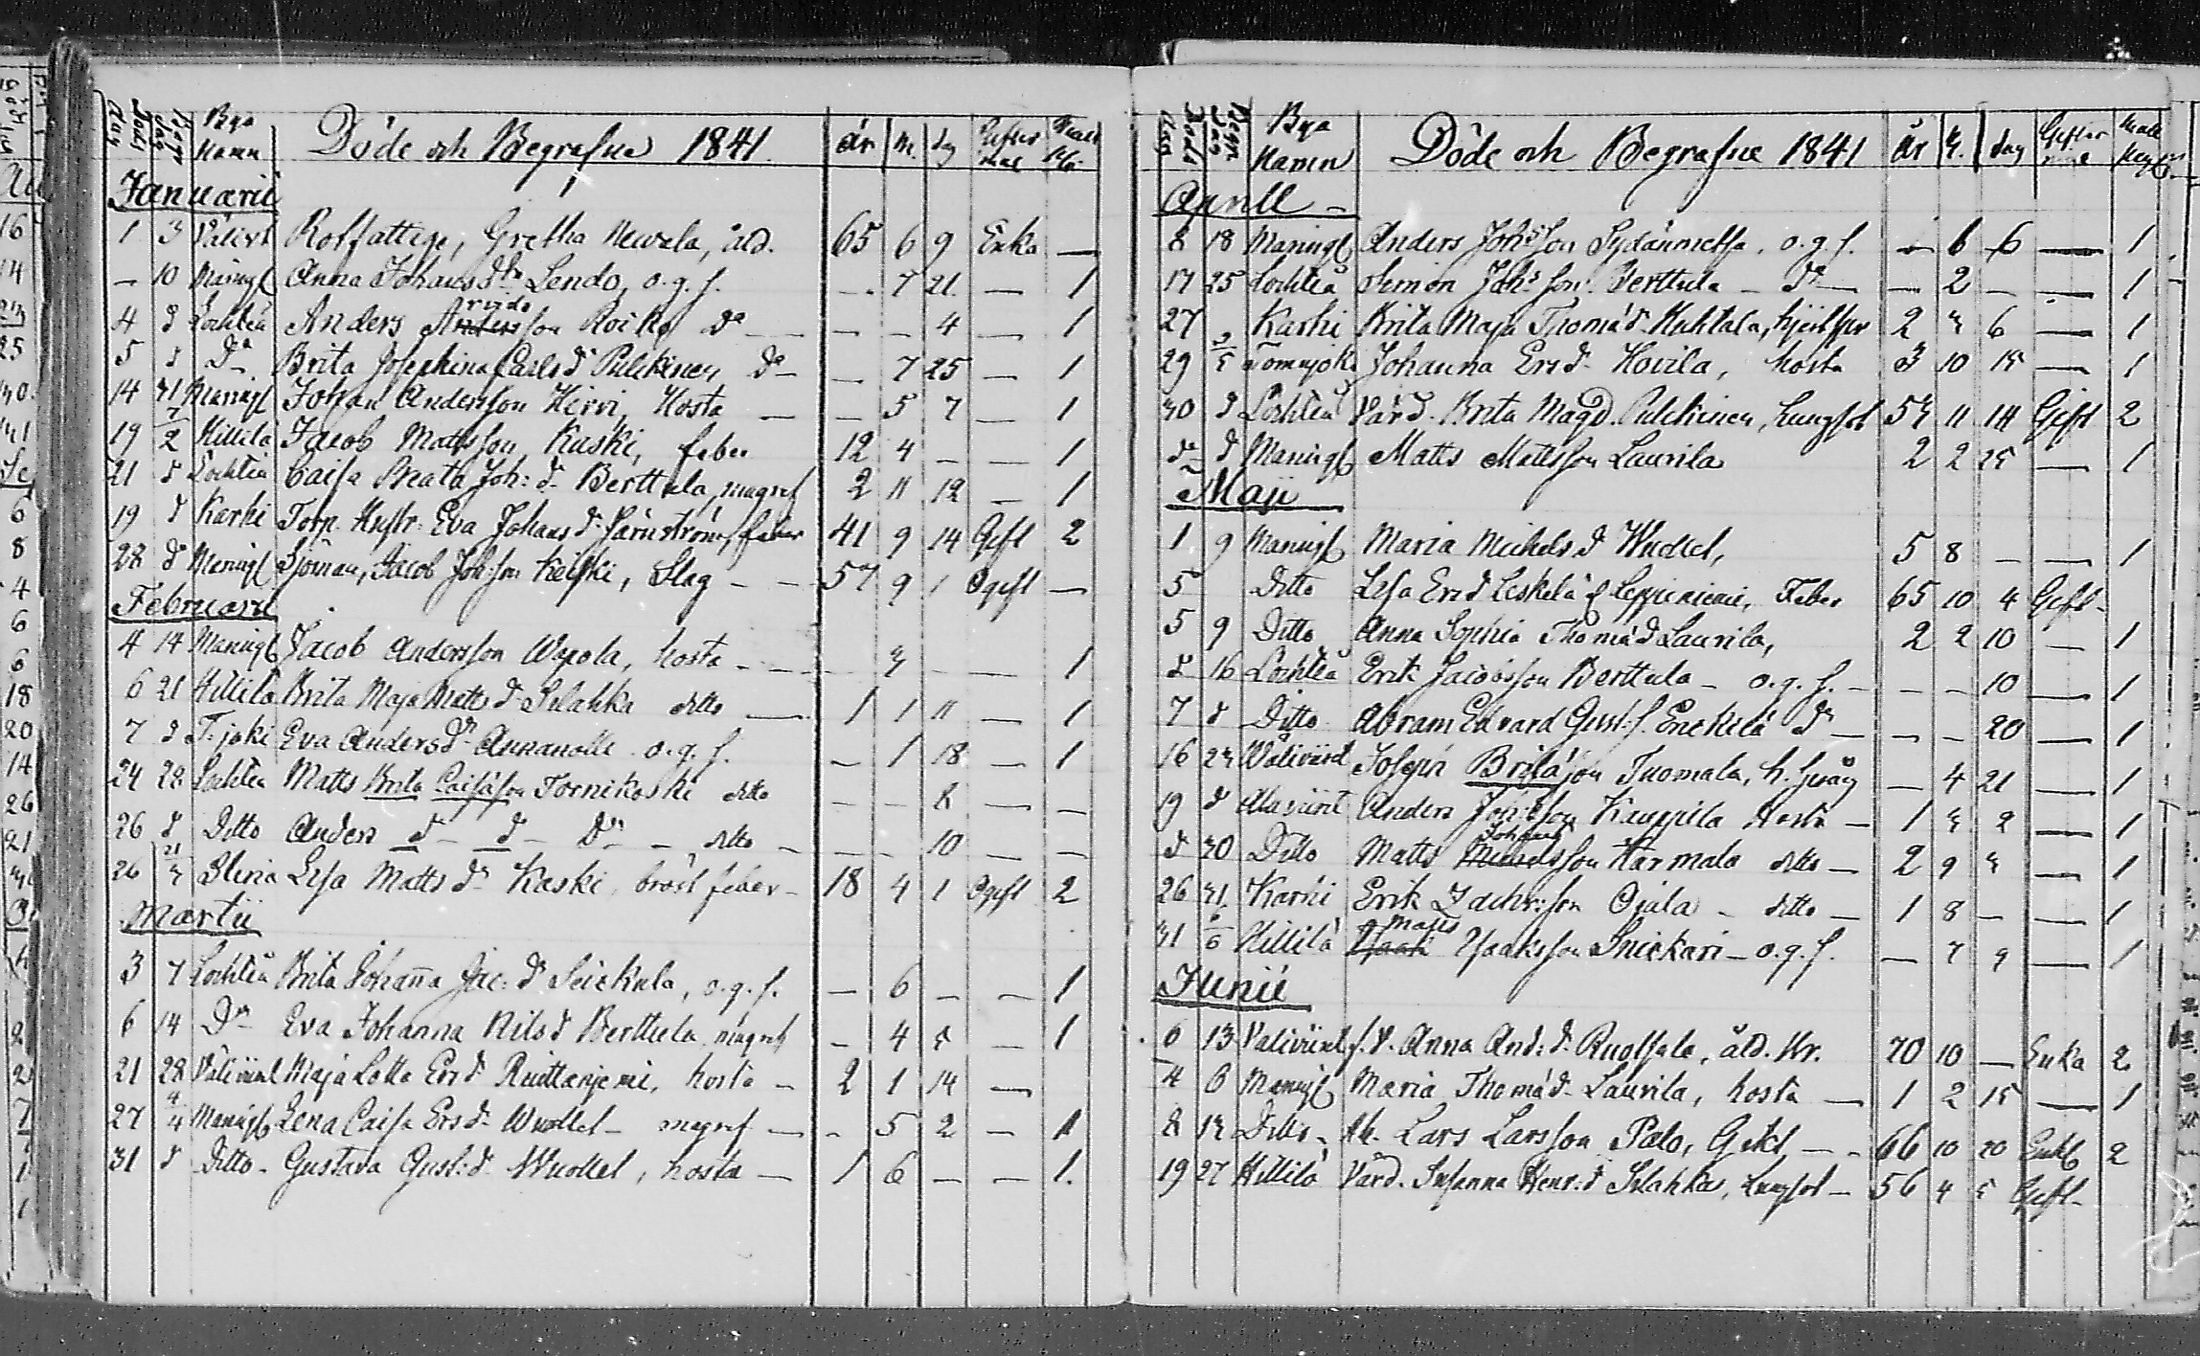 Döds dag Begr dag Bya Namn Döde och Begrafne 1841. år M. dag
Januarii
1 3 Rotfattige, Gretha Newala, åld. 65 6 9 Enka —
— 10 Maningb Anna Johans dr Lendo, o.g.f. — 7 21 — 1
4 d Lochteå Anders Arvidsson Roiko do — — 4 — 1
5 d Do Brita Josephina Carls dr Pulkinen do — 7 25 — 1
14 31 Maningb Johan Andersson Hirvi, Hosta — 5 7 — 1
19 7/2 Hillilä Jacob Mattsson Kaski, feber 12 4 — — 1
21 d Lochteå Caisa Beata Joh: dr Berttula, magref 2 11 12 — 1
19 d Karhi Torp. Hustr. Eva Johans dr Järnström, feber 41 9 14 Gift 2
28 d Maningb Sjöman, Jacob Johsson Keiski, Slag — 57 9 1 Ogift —
Februarii
4 14 Maningb Jacob Andersson Wapola, hosta — 3 — — 1
6 21 Hillilä Brita Maja Matts d Silahka ditto — 1 1 11 — 1
7 d T. joki Eva Anders dr Annanolli o.g.f. — 1 18 — 1
24 28 Lochteå Matts Brita Caisason Tornikoski ditto — — 8 — —
26 d Ditto Anders d — d — Do — ditto — — 10 — —
26 21/3 Lisa Matts dr Kaski, bröst feber — 18 4 1 Ogift 2
Martii
3 7 Lochteå Brita Johanna Jac: dr Seickula, o.g.f. — 6 — — 1
6 14 Do Eva Johanna Nils d Berttula, magref — 4 5 — 1
21 28 Maja Lotta Ers d hosta — 2 1 14 —
27 4/4 Maningb Lena Caisa Ers d. Wuollet — magref — 5 2 — 1
31 d Ditto — Gustava Gust: d. Wuollet, hosta — 1 6 — — 1.
Döds dag Begr. dag Bya Namn Döde och Begrafne 1841 År M. dag
Aprill —
8 18 Maningb Anders Johsson Sydänmetsä, o.g.f. — 6 6 — 1
17 25 Lochteå Simon Johsson Berttula — Do — 2 — — 1
27 Karhi Brita Maja Thomæ d. Huhtala, 2 3 6 — 1
29 2/5 Johanna Ers d. Hovila, hosta 3 10 15 — 1
30 d Lochteå Värd. Brita Magd. Pulckinen, Lungsot 53 11 14 Gift 2
d d Maningb Matts Mattsson Laurila 2 2 25 — 1
Maji
1 9 Maningb Maria Michels d Wuollet, 5 8 — — 1
5 Ditto Lisa Ers d Leskelä f. Leppiniemi, Feber 65 10 4 Gift —
5 9 Ditto Anna Sophia Thomæ d Laurila, 2 2 10 — 1
d 16 Lochteå Erik Jacobsson Berttula — o.g.f. — — — 10 — 1
7 d Ditto Abram Edvard Gust: s. Enckilä do — — — 20 — 1
16 23 Joseph Britason Tuomala, — 4 21 — 1
19 d Alaviirt Anders Johsson Kauppila Hosta — 1 3 2 — 1
d 30 Ditto Matts Johansson Karmala ditto — 2 9 3 — 1
26 31 Karhi Erik Zachr:son Ojala — ditto — 1 8 — — 1
31 6/6 Hillilä Matts Isaaksson Snickari — o.g.f. — 7 9 — 1
Junii
6 13 Anna And: d. Ruotsala, åld. Kr. 70 10 — Enka 2
4 6 Maningb Maria Thomæ d. Laurila, hosta — 1 2 15 — 1
8 13 Ditto — Lars Larsson Palo, Gikt — 66 10 20 Enkl 2
19 27 Hillilä Värd. Susanna Henr: d Silahka, Lungsot — 56 4 5 Gift —